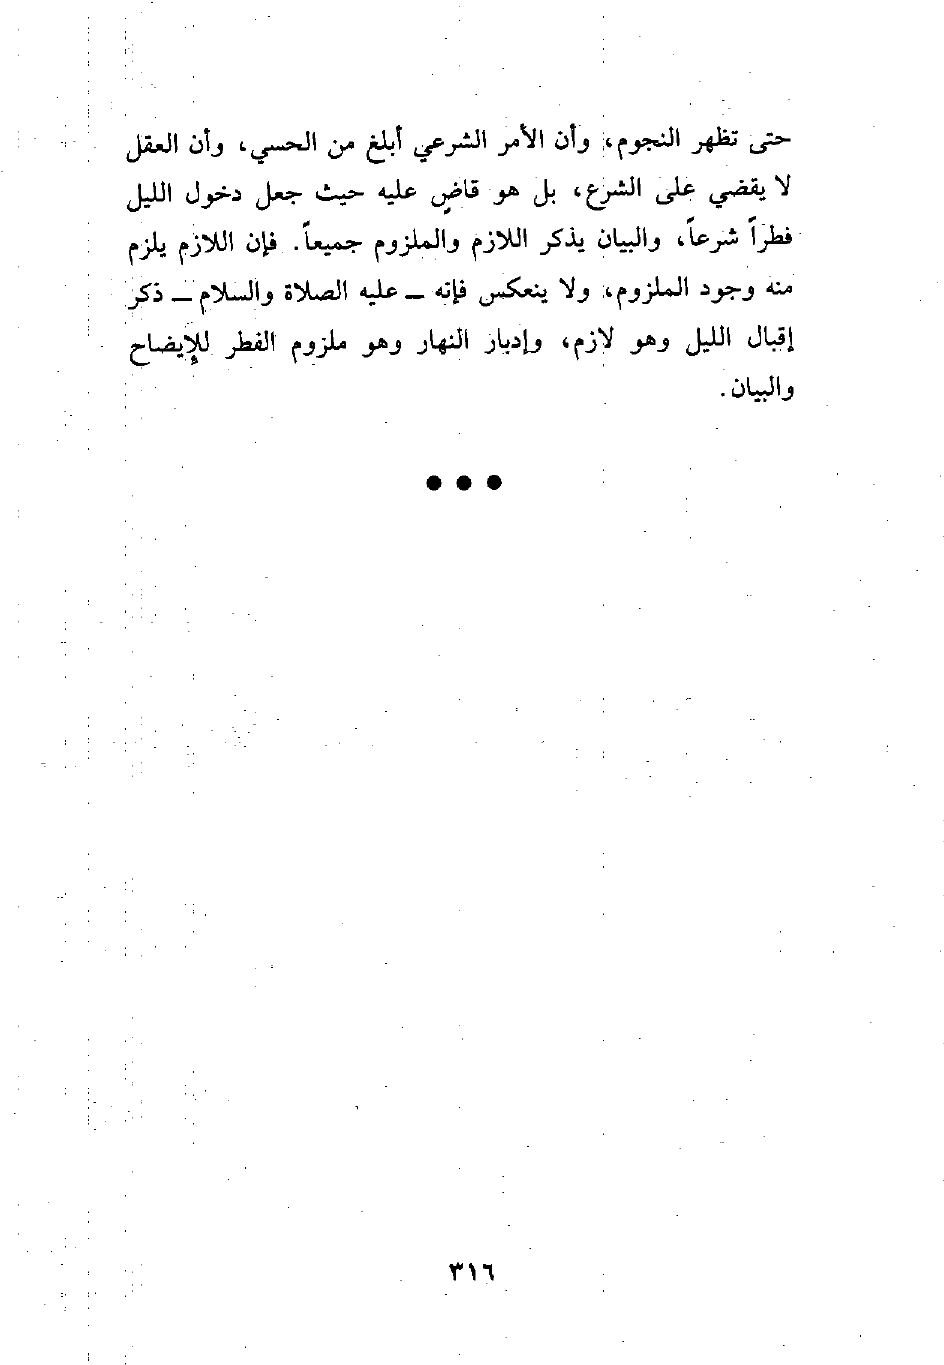 حتى تظهر النجوم، وأن الأمر الشرعي أبلغ من الحسي، وأن العقل
لا يقضي على الشرع، بل هو قاضٍ عليه حيث جعل دخول الليل
فطراً شرعاً، والبيان يذكر اللازم والملزوم جميعاً. فإن اللازم يلزم
منه وجود الملزوم، ولا ينعكس فإنه ــ عليه الصلاة والسلام ــ ذكر
إقبال الليل وهو لازم، وإدبار النهار وهو ملزوم الفطر للإيضاح
والبيان.
● ● ●
٣١٦